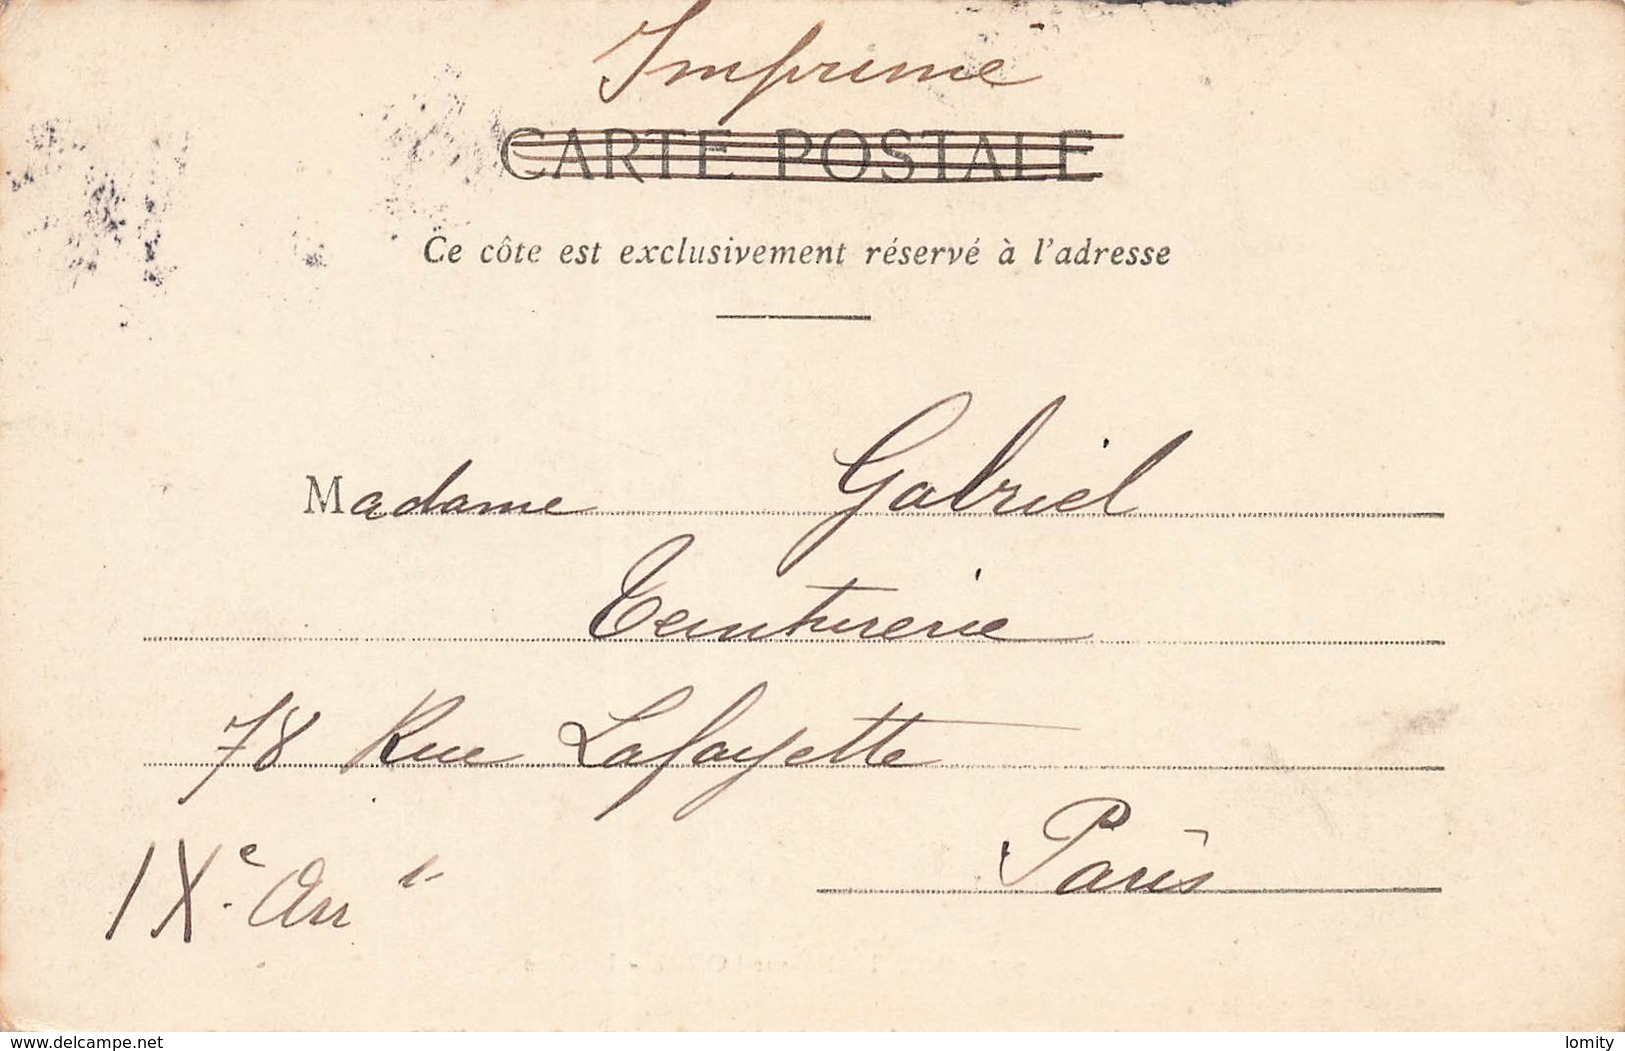 Imprimé
CARTE POSTALE
Ce côte est exclusivement réservé à l'adresse
Madame Gabriel
Teinturerie
78 Rue Lafayette
Paris
IXe Arr t
www.delcampe.net
lomity